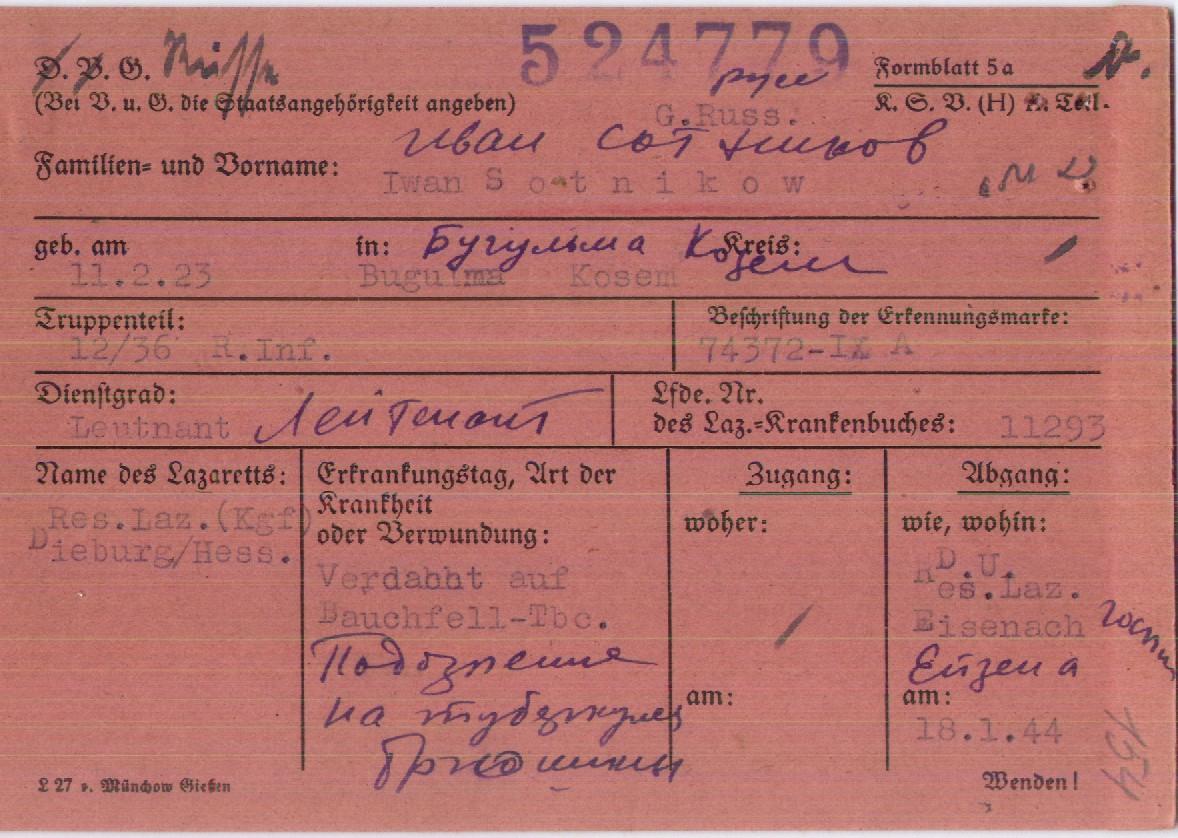 524779
D. V. G. Russe
Formblatt 5a
(Bei V. u. G. die Staatsangehörigkeit angeben)
K. S. V. (H) Teil.
русс
G.Russ.
Иван Сотников
Familien= und Vorname:
Iwan Sotnikow
geb. am in: Бугульма Kreis:
11.2.23 Bugulma Kosem
Truppenteil: Beschriftung der Erkennungsmarke:
12/36 R.Inf. 74372-IX A
Dienstgrad: Lfde. Nr.
Leutnant Лейтенант des Laz.=Krankenbuches: 11293
Name des Lazaretts:
Res.Laz.(Kgf)
Dieburg/Hess.
Erkrankungstag, Art der
Krankheit
oder Verwundung:
Verdabht auf
Bauchfell-Tbc.
Подозрение
на туберкулез
брюшины
Zugang:
woher:
am:
Abgang:
wie, wohin:
D.U.
Res.Laz.
Eisenach
госпит
Ейзена
am:
18.1.44
154
L 27 v. Münchow Gießen
Wenden!